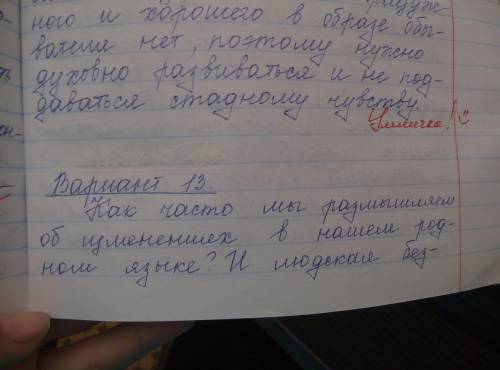 ного и хорошего в образе обы-
вателя нет, поэтому нужно
духовно развиваться и не под-
даваться стадному чувству.
Умничка!
Вариант 13.
Как часто мы размышляем
об изменениях в нашем род-
ном языке? И людская без-